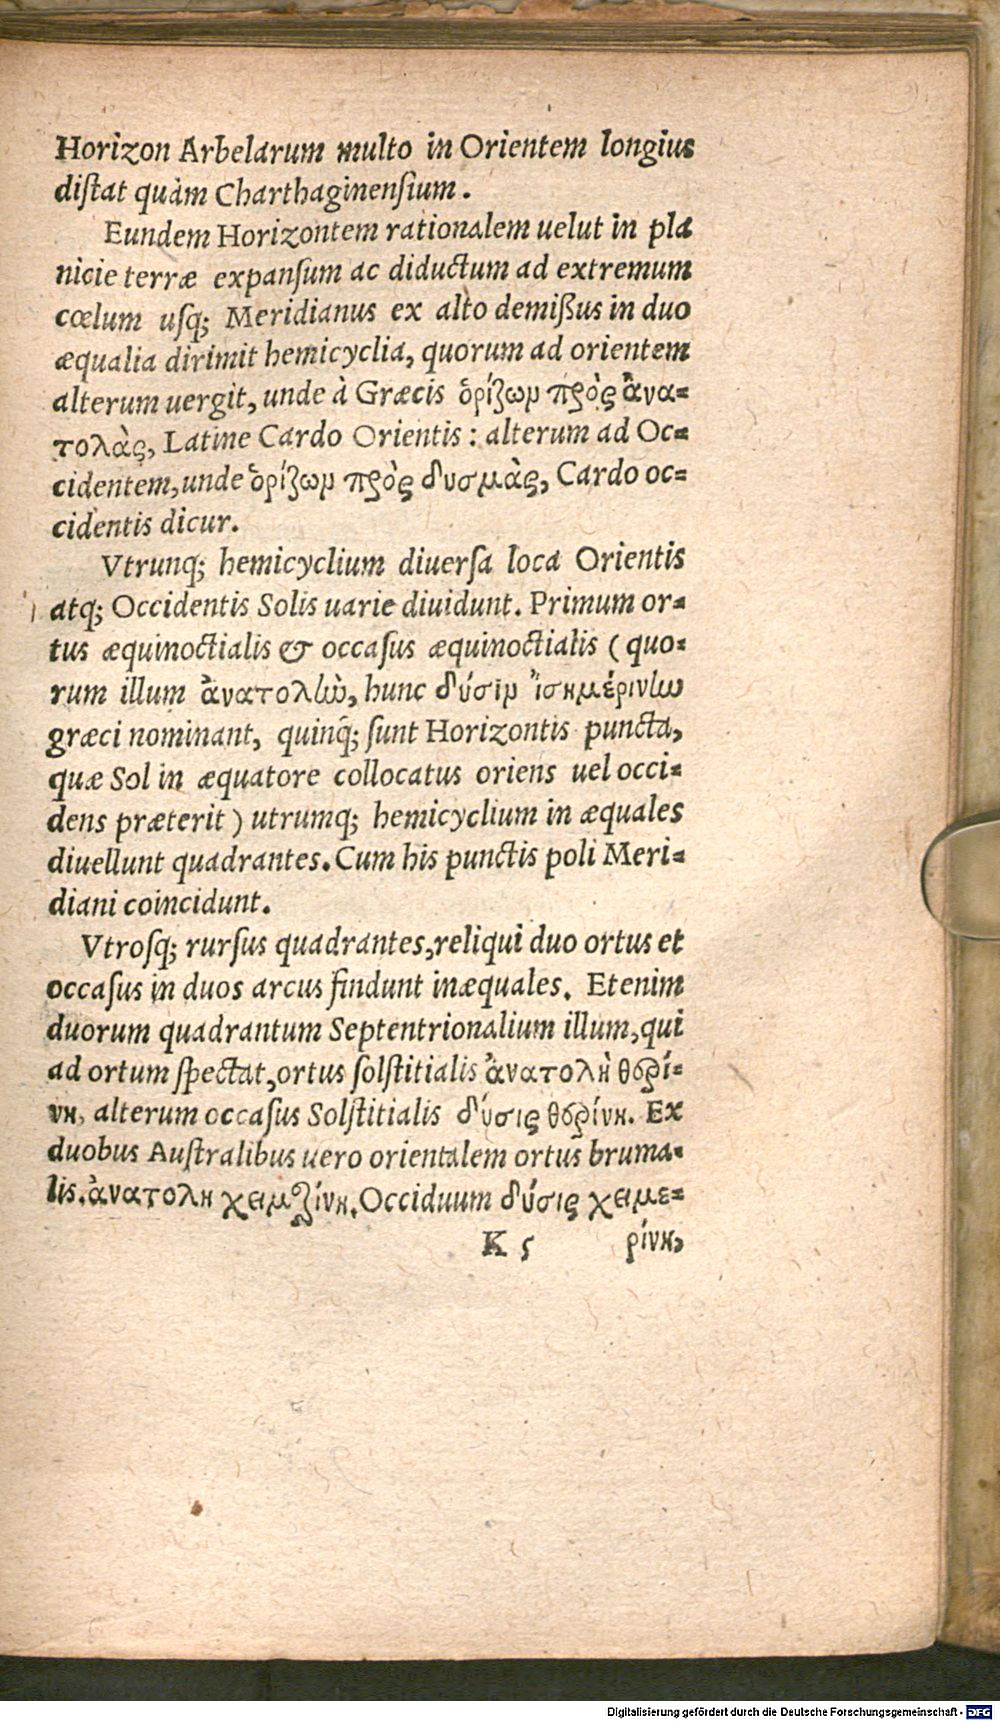 Horizon Arbelarum multo in Orientem longius
diſtat quàm Charthaginenſium.
Eundem Horizontem rationalem uelut in pla
nicie terræ expanſum ac diductum ad extremum
cœlum uſq; Meridianus ex alto demiſſus in duo
æqualia dirimit hemicyclia, quorum ad orientem
alterum uergit, unde à Græcis ὁρίζωμ πρὸς ἀνα-
τολὰς, Latine Cardo Orientis: alterum ad Oc-
cidentem, unde ὁρίζωμ πρὸς δυσμὰς, Cardo oc-
cidentis dicur.
Vtrunq; hemicyclium diuerſa loca Orientis
atq; Occidentis Solis uarie diuidunt. Primum or-
tus æquinoctialis & occaſus æquinoctialis (quo-
rum illum ἀνατολὼ, hunc δύσιμ ἰσημέρινὼ
græci nominant, quinq̃; ſunt Horizontis puncta,
quæ Sol in æquatore collocatus oriens uel occi-
dens præterit) utrumq; hemicyclium in æquales
diuellunt quadrantes. Cum his punctis poli Meri-
diani coincidunt.
Vtroſq; rurſus quadrantes, reliqui duo ortus et
occaſus in duos arcus findunt inæquales. Etenim
duorum quadrantum Septentrionalium illum, qui
ad ortum ſpectat, ortus ſolſtitialis ἀνατολὴ θερί-
νη, alterum occaſus Solſtitialis δύσις θερίνη. Ex
duobus Auſtralibus uero orientalem ortus̃ bruma-
lis. ἀνατολη χειμερίνη. Occiduum δύσις χειμε-
K 5 ρίνη,
Digitalisierung gefördert durch die Deutsche Forschungsgemeinschaft - DFG